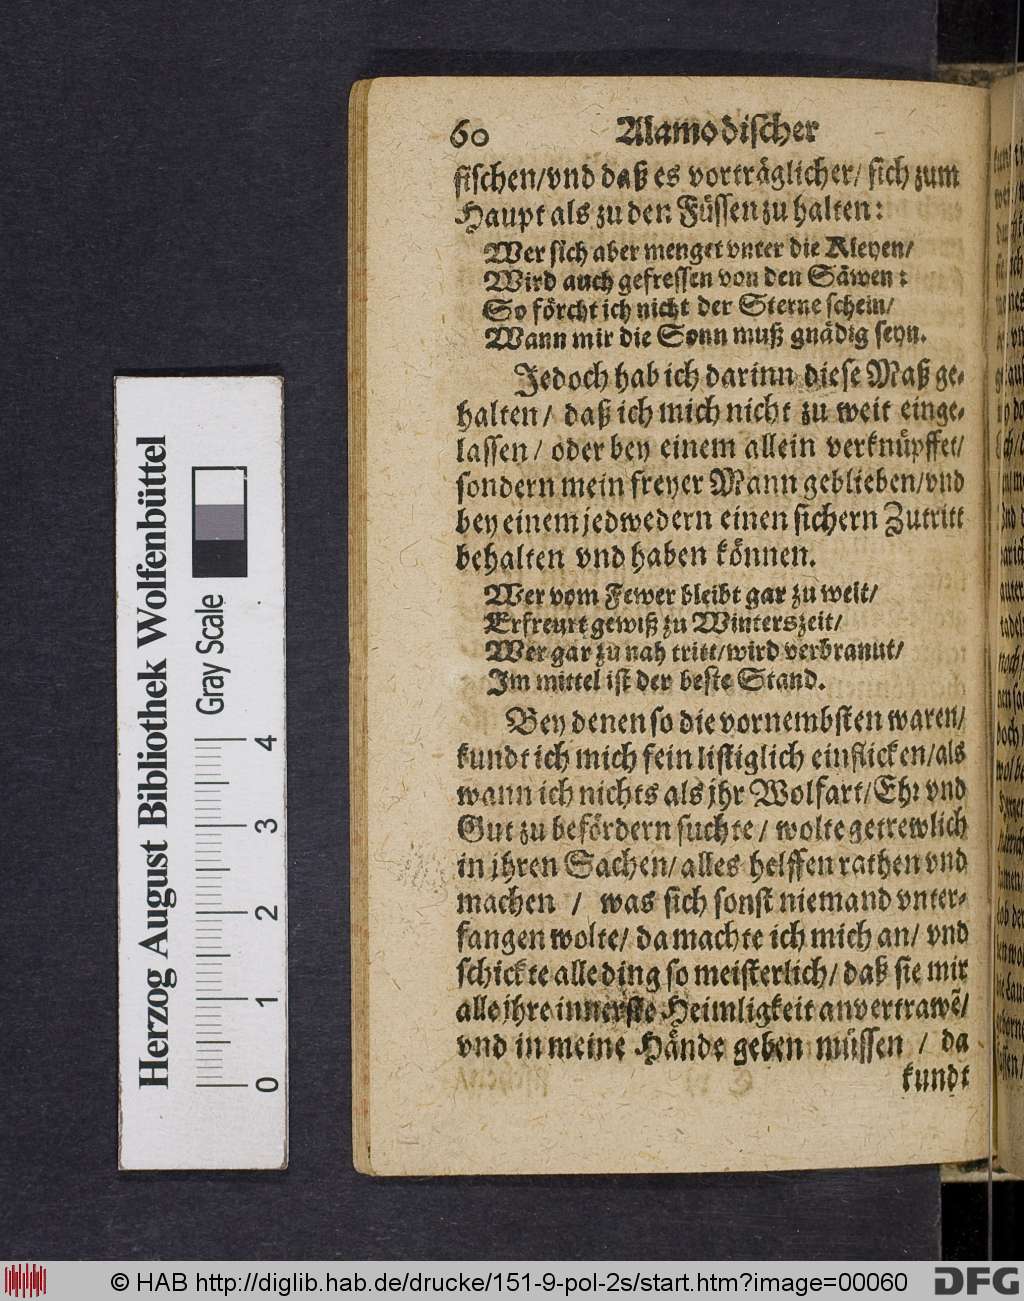 60 Alamodischer
fischen/vnd daß es vorträglicher/ sich zum
Haupt als zu den Füssen zu halten:
Wer sich aber menget vnter die Kleyen/
Wird auch gefressen von den Säwen:
So förcht ich nicht der Sterne schein/
Wann mir die Sonn muß gnädig seyn.
Jedoch hab ich darinn diese Maß ge-
halten/ daß ich mich nicht zu weit einge-
lassen/ oder bey einem allein verknüpffet/
sondern mein freyer Mann geblieben/vnd
bey einem jedwedern einen sichern Zutritt
behalten vnd haben können.
Wer vom Fewer bleibt gar zu weit/
Erfreurt gewiß zu Winterszeit/
Wer gar zu nah tritt/wird verbrannt/
Im mittel ist der beste Stand.
Bey denen so die vornembsten waren/
kundt ich mich fein listiglich einflicken/als
wann ich nichts als jhr Wolfart/Ehr vnd
Gut zu befördern suchte/ wolte getrewlich
in jhren Sachen/ alles helffen rathen vnd
machen / was sich sonst niemand vnter-
fangen wolte/ da machte ich mich an/ vnd
schickte alle ding so meisterlich/ daß sie mir
alle jhre innerste Heimligkeit anvertrawẽ/
vnd in meine Hände geben müssen / da
kundt
Herzog August Bibliothek Wolfenbüttel
Gray Scale
0 1 2 3 4
© HAB http://diglib.hab.de/drucke/151-9-pol-2s/start.htm?image=00060
DFG